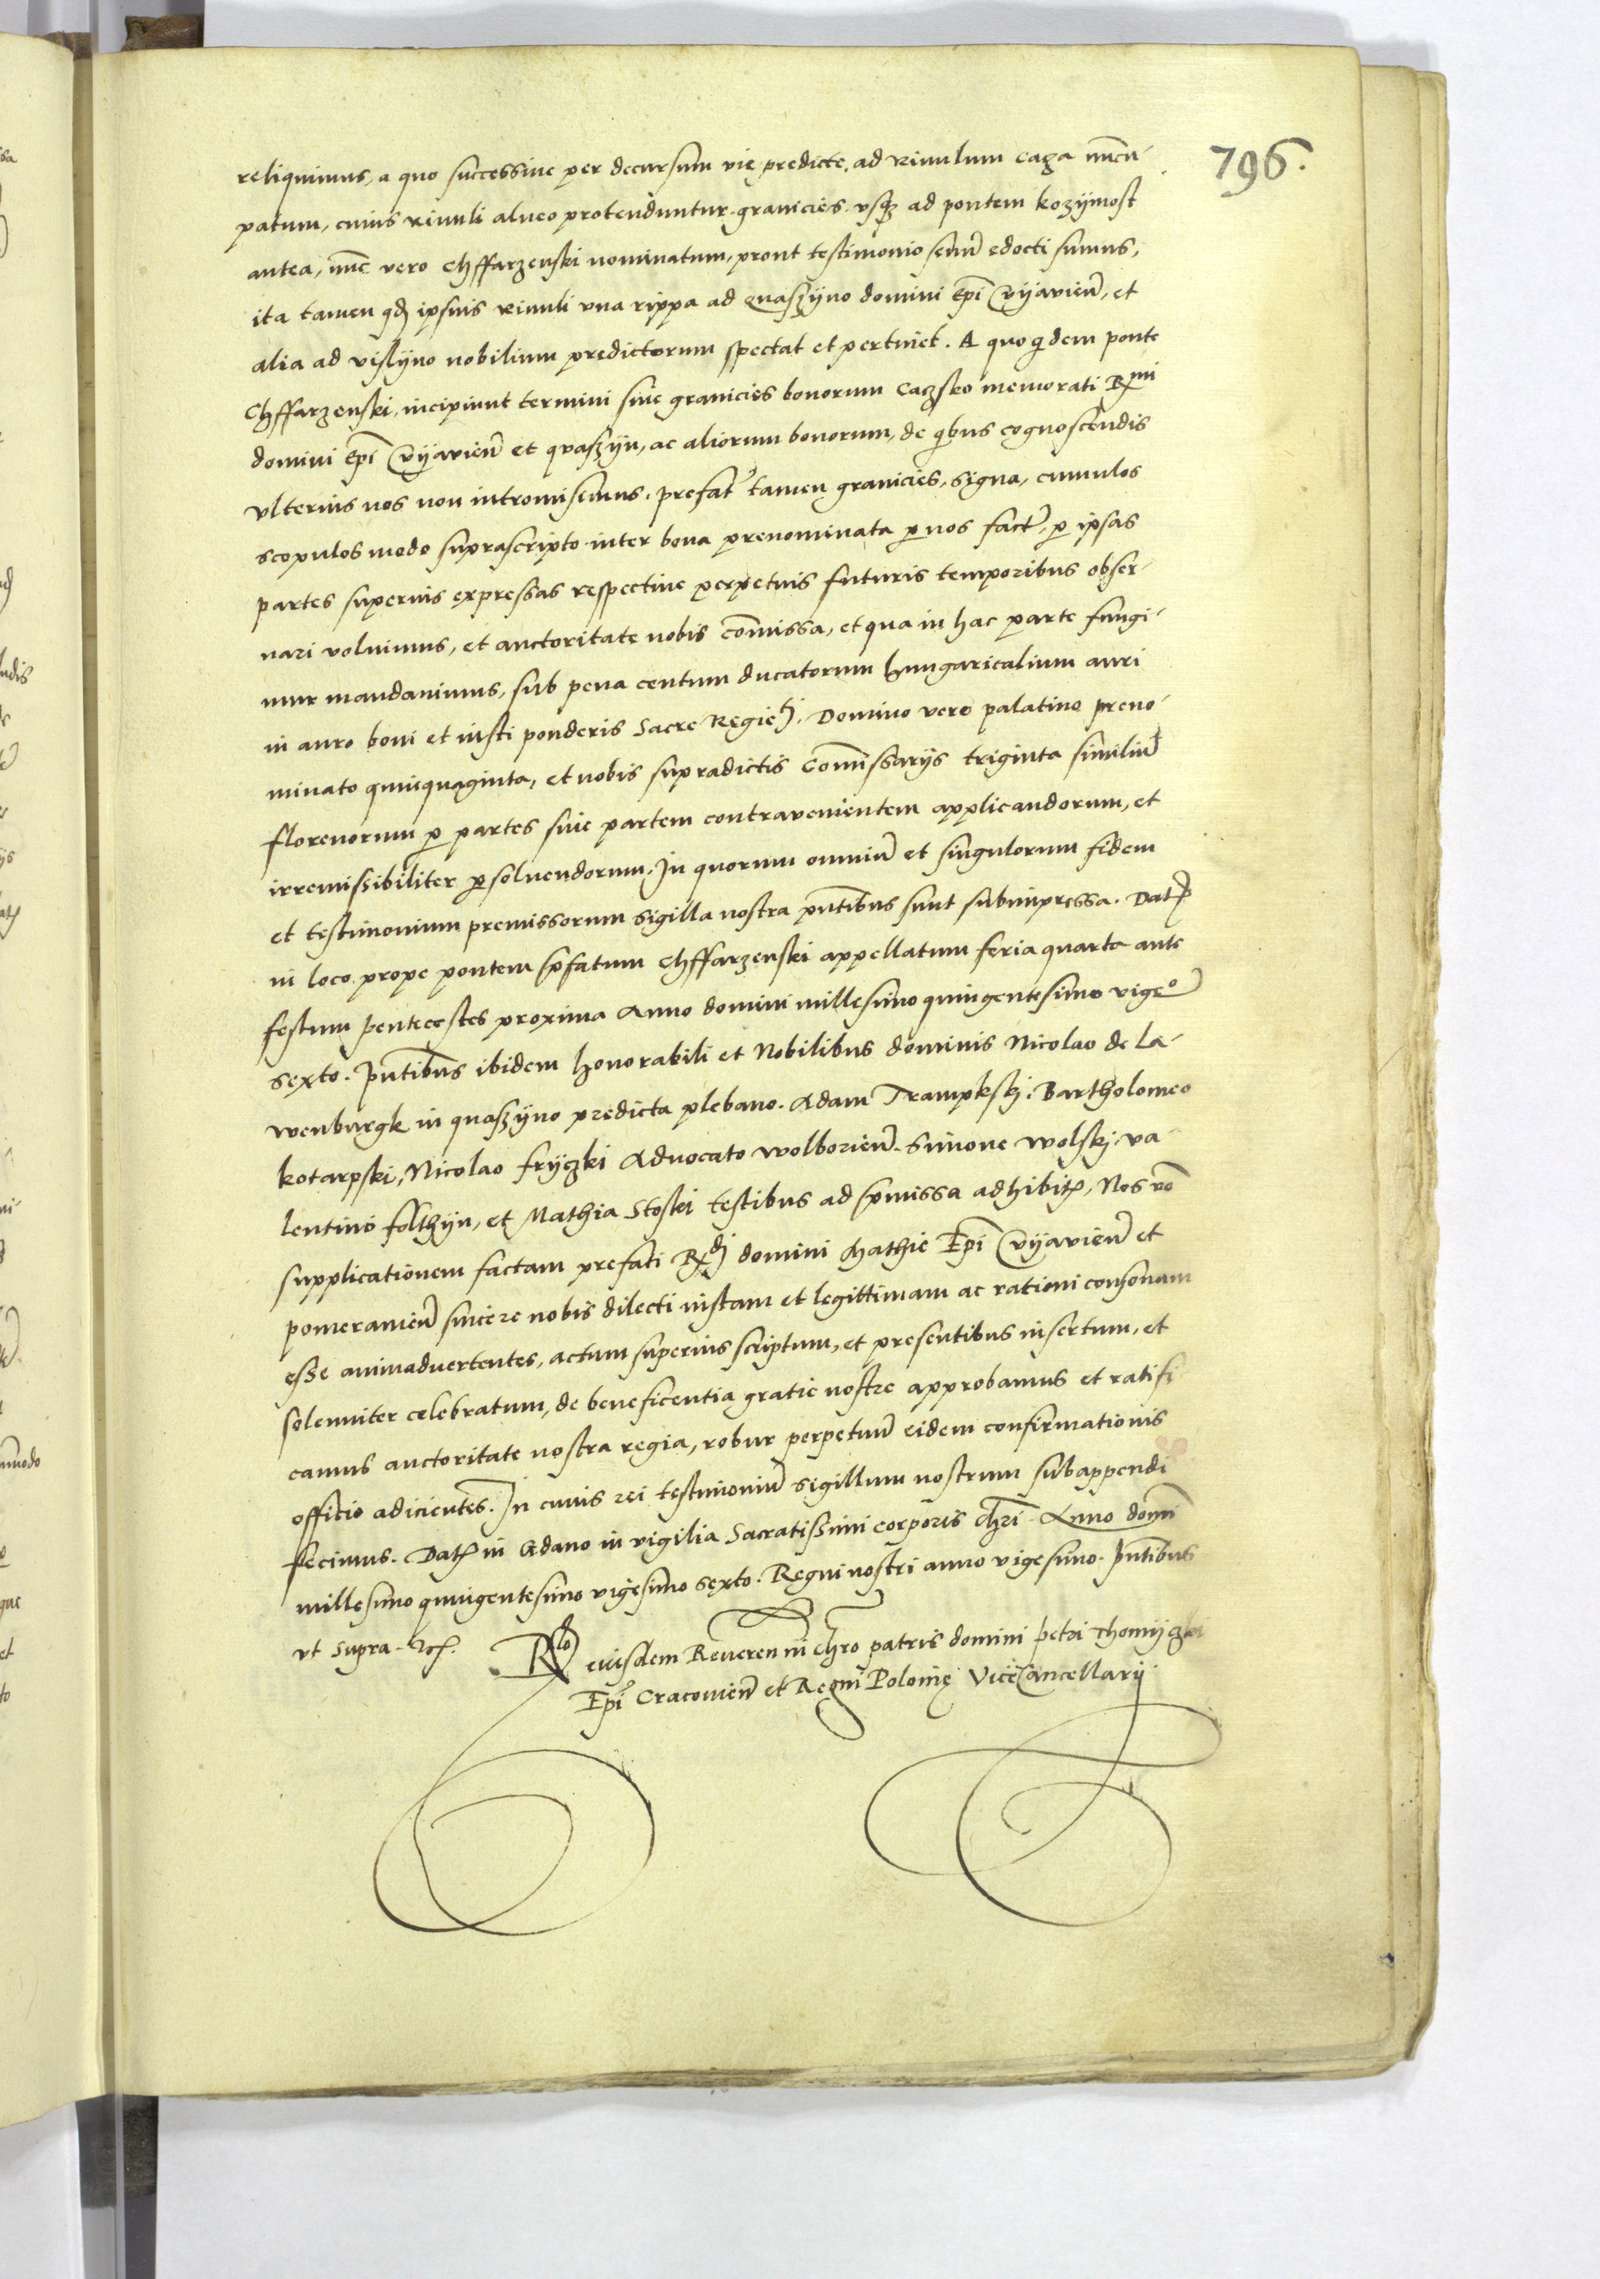 796.
reliquimus, a quo successive per decursum vie predicte, ad rivulum caza nu̅cu-
patum, cuius rivuli alveo protenduntur granicies usq3 ad pontem kozijmost
antea, nu̅c vero chffarzenski nominatum, prout testimonio senu̅ edocti sumus,
ita tamen qd ipsius rivuli una rippa ad quaszijno domini Ep̅i Cuijavien̅, et
alia ad vislijno nobilium predictorum spectat et pertinet. A quoqdem ponte
Chffarzenski, incipiunt termini sive granicies bonorum Cazsko memorati Rmi
domini Ep̅i Cuijavien̅ et quaszijn, ac aliorum bonorum, de qbus cognosce̅dis
ulterius nos non intromisimus. prefat tamen granicies, signa, cumulos
scopulos modo suprascripto inter bona prenominata p nos fact, p ipsas
partes superius expressas respective perpetuis futuris temporibus obser-
vari volumus, et auctoritate nobis com̅issa, et qua in hac parte fungi-
mur mandavimus, sub pena centum ducatorum hungaricalium auri
in auro boni et iusti ponderis Sacre Regie M. Domino vero palatino preno-
minato quinquaginta, et nobis supradictis Com̅issarijs triginta similiu̅
florenorum p partes sive partem contravenientem applicandorum, et
irremissibiliter psolvendorum. In quorum omniu̅ et singulorum fidem
et testimonium premissorum sigilla nostra pn̅tibus sunt subimpressa. Dat
in loco prope pontem pfatum chffarzenski appellatum feria quarta ante
festum pentecostes proxima Anno domini millesimo quingentesimo vigeo
sexto. pn̅tibus ibidem honorabili et Nobilibus dominis Nicolao de La-
wenburgk in quaszijno predicta plebano. Adam Trampkski. Bartholomeo
kotarpski, Nicolao frijczki Advocato wolborien̅. Simone wolski, va-
lentino folthijn, et Mathia Stoski testibus ad pmissa adhibit, Nos vo
supplicationem factam prefati Rdi domini Mathie Ep̅i Cuijavien̅ et
pomeranien̅ sincere nobis dilecti iustam et legittimam ac rationi consonam
esse animadvertentes, actum superius scriptum, et presentibus insertum, et
solenniter celebratum, de beneficentia gratie nostre approbamus et ratifi
camus auctoritate nostra regia, robur perpetuu̅ eidem confirmationis
officio adicientes. In cuius rei testimoniu̅ sigillum nostrum subappendi
fecimus. Dat in Gdano in vigilia Sacratissimi corporis chri̅ Anno domi̅
millesimo quingentesimo vigesimo sexto. Regni nostri anno vigesimo. pn̅tibus
ut supra
Rlo eiusdem Reveren in chro patris domini petri Thomijczki
Ep̅i Cracovien̅ et Regni Polonie Vicecancellarij